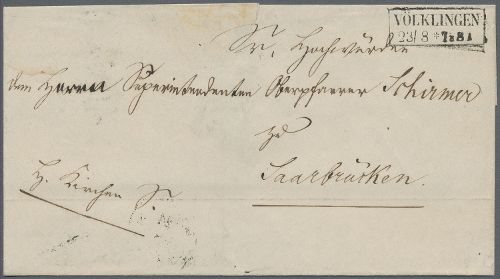 VÖLKLINGEN
23/8 * 7 a 8 A
Sr. Hochwürden
dem Herrn Superintendenten Oberpfarrer Schirmer
zu
Saarbrücken.
H. Kirchen S.